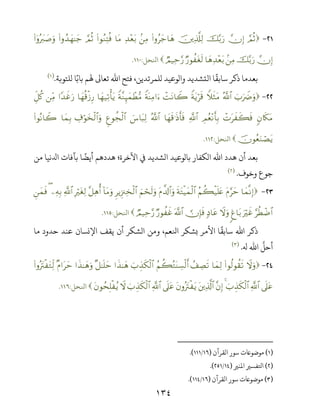 ٢١- ﴿ ثُمَّ إِنَّ رَبَّكَ لِلَّذِينَ هَاجَرُوا مِنْ بَعْدِ مَا فُتِنُوا ثُمَّ جَاهَدُوا وَصَبَرُوا
إِنَّ رَبَّكَ مِنْ بَعْدِهَا لَغَفُورٌ رَحِيمٌ ﴾ النحل:١١٠.
بعدما ذكر سابقًا التشديد والوعيد للمرتدين، فتح الله تعالى لهم بابًا للتوبة.(١)
٢٢- ﴿ وَضَرَبَ اللَّهُ مَثَلًا قَرْيَةً كَانَتْ آمِنَةً مُطْمَئِنَّةً يَأْتِيهَا رِزْقُهَا رَغَدًا مِنْ كُلِّ
مَكَانٍ فَكَفَرَتْ بِأَنْعُمِ اللَّهِ فَأَذَاقَهَا اللَّهُ لِبَاسَ الْجُوعِ وَالْخَوْفِ بِمَا كَانُوا
يَصْنَعُونَ ﴾ النحل:١١٢.
بعد أن هدد الله الكفار بالوعيد الشديد في الآخرة؛ هددهم أيضًا بآفات الدنيا من
جوع وخوف.(٢)
٢٣- ﴿ إِنَّمَا حَرَّمَ عَلَيْكُمُ الْمَيْتَةَ وَالدَّمَ وَلَحْمَ الْخِنْزِيرِ وَمَا أُهِلَّ لِغَيْرِ اللَّهِ بِهِ فَمَنِ
اضْطُرَّ غَيْرَ بَاغٍ وَلَا عَادٍ فَإِنَّ اللَّهَ غَفُورٌ رَحِيمٌ ﴾ النحل:١١٥.
ذكر الله سابقًا الأمر بشكر النعم، ومن الشكر أن يقف الإنسان عند حدود ما
أحلَّ الله له.(٣)
٢٤- ﴿ وَلَا تَقُولُوا لِمَا تَصِفُ أَلْسِنَتُكُمُ الْكَذِبَ هَذَا حَلَالٌ وَهَذَا حَرَامٌ لِتَفْتَرُوا
عَلَى اللَّهِ الْكَذِبَ إِنَّ الَّذِينَ يَفْتَرُونَ عَلَى اللَّهِ الْكَذِبَ لَا يُفْلِحُونَ ﴾ النحل:١١٦.
(١) موضوعات سور القرآن (١١١/١٦).
(٢) التفسير المنير (٢٥١/١٤).
(٣) موضوعات سور القرآن (١١٤/١٦).
١٣٤